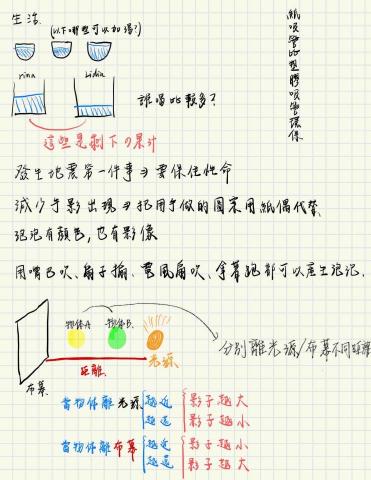 生活
(以下哪些可以加湯?)
rina
Lidia
誰喝比較多?
這些是剩下の果汁
紙吸管比塑膠吸管環保
發生地震第一件事⇒要保住性命
減少手影出現⇒把用手做的圖案用紙偶代替
泡泡有顏色,也有影像
用嘴巴吹、扇子搧、電風扇吹、拿著跑都可以產生泡泡.
物体A
物体B
光源
分別離光源/布幕不同距離
距離
布幕
當物体離光源
越近
影子越大
越遠
影子越小
當物体離布幕
越近
影子越小
越遠
影子越大